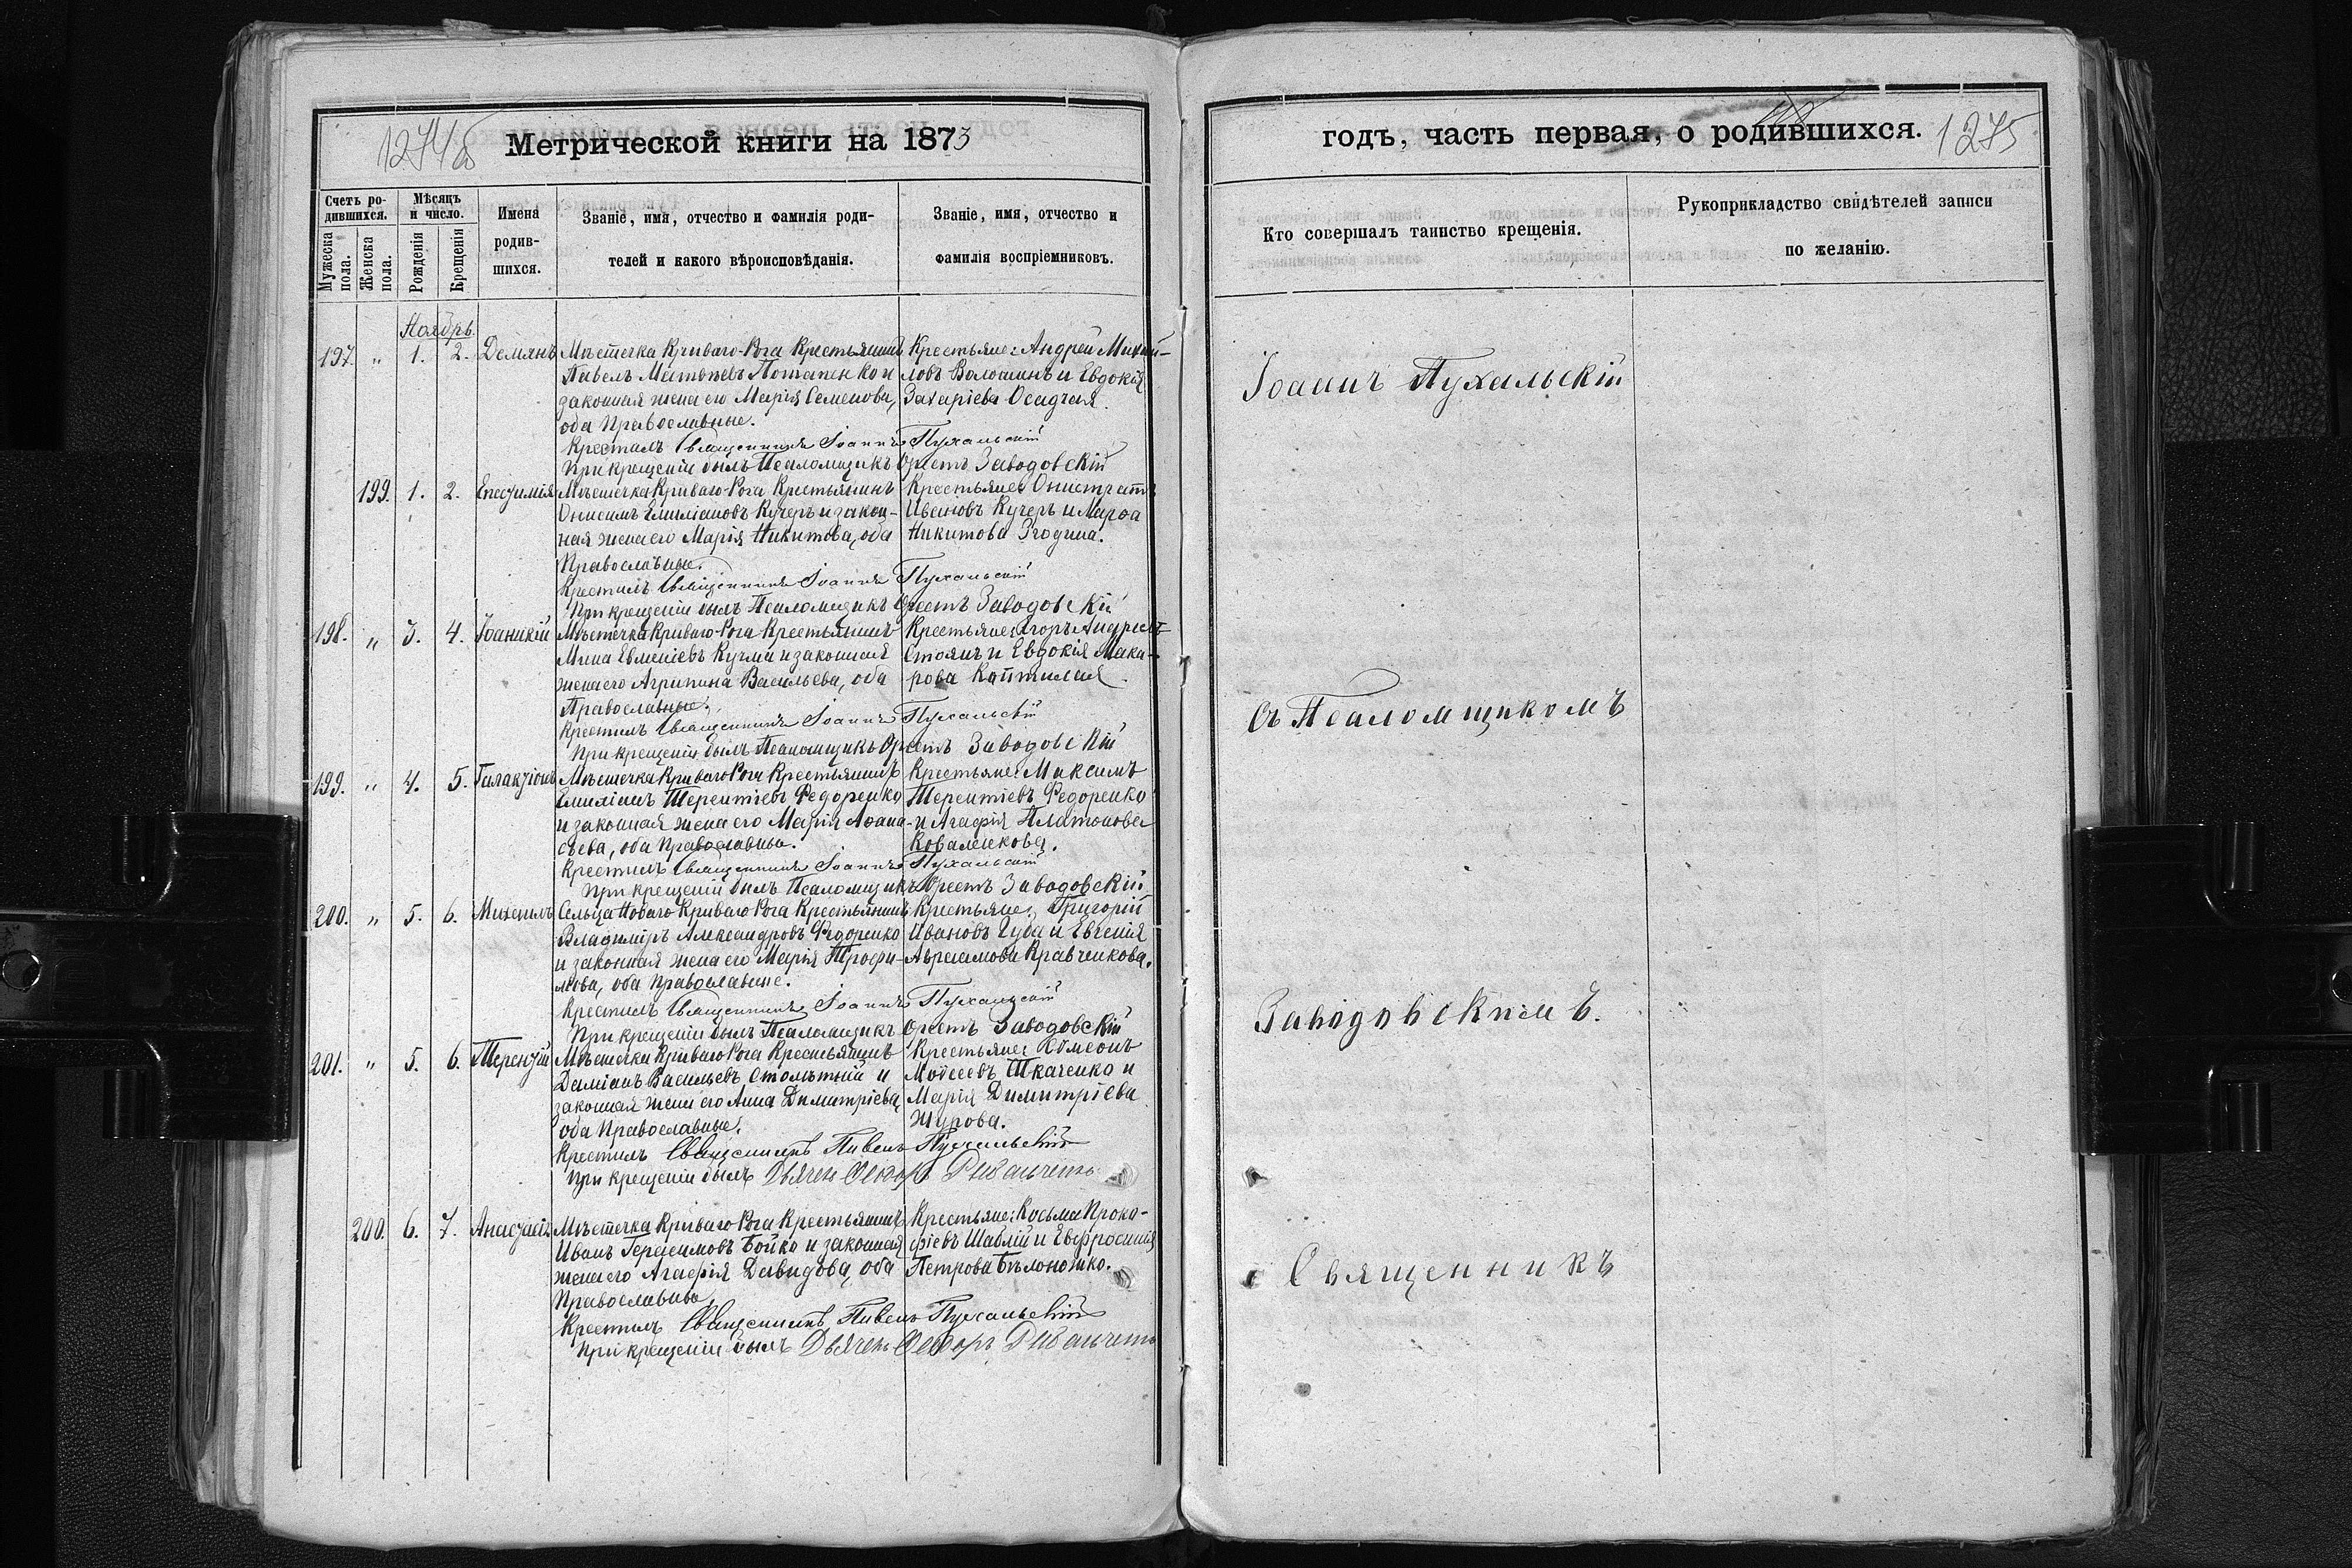 1274об
Метрической книги на 1873
Счетъ ро-
дившихся.
Мужеска
пола.
Женска
пола.
Мѣсяцъ
и число.
Рожденія
Крещенія
Имена
родив-
шихся.
Званіе, имя, отчество и фамилія роди-
телей и какого вѣроисповѣданія.
Званіе, имя, отчество и
фамилія воспріемниковъ.
Ноябрь.
197. „ 1. 2. Демянъ
Мѣстечка Криваго-Рога Крестьянинъ
Павелъ Матѳеевъ Потапенко и
законная жена его Марія Семенова,
оба Православные.
Крестьяне: Андрей Михай-
ловъ Волошинъ и Евдокія
Захаріева Осадчая.
Крестилъ Священникъ Іоаннъ Пухальскій
При крещеніи былъ Псаломщикъ Орестъ Заводовскій
199. 1. 2. Епестимія
Мѣстечка Криваго-Рога Крестьянинъ
Онисимъ Емиліановъ Кучеръ и закон-
ная жена его Марія Никитова, оба
Православные.
Крестьяне: Онистратъ
Ивановъ Кучеръ и Марѳа
Никитова Згодина.
Крестилъ Священникъ Іоаннъ Пухальскій
При крещеніи былъ Псаломщикъ Орестъ Заводовскій
198. „ 3. 4. Іоаникій
Мѣстечка Криваго-Рога Крестьянинъ
Мина Евменіевъ Кучма и законная
жена его Агрипина Васильева, оба
Православные.
Крестьяне: Егоръ Андреевъ
Стоянъ и Евдокія Мака-
рова
Крестилъ Священникъ Іоаннъ Пухальскій
При крещеніи былъ Псаломщикъ Орестъ Заводовскій
199. „ 4. 5. Галактіонъ
Мѣстечка Криваго Рога Крестьянинъ
Емиліанъ Терентіевъ Федоренко
и законная жена его Марія Аѳана-
сьева, оба Православны.
Крестьяне: Максимъ
Терентіевъ Федоренко
и Агафія Платонова
Коваленкова.
Крестилъ Священникъ Іоаннъ Пухальскій
При крещеніи былъ Псаломщикъ Орестъ Заводовскій.
200. „ 5. 6. Михаилъ
Сельца Новаго Криваго Рога Крестьянинъ
Владиміръ Александровъ Федоренко
и законная жена его Марія Трофи-
мова, оба Православные.
Крестьяне: Григорій
Ивановъ Губа и Евгенія
Авраамова Кравченкова.
Крестилъ Священникъ Іоаннъ Пухальскій
При крещеніи былъ Псаломщикъ Орестъ Заводовскій
201. „ 5. 6. Терентій
Мѣстечка Криваго Рога Крестьянинъ
Даміанъ Васильевъ Столѣтній и
законная жена его Анна Димитріева,
оба Православные.
Крестьяне:
Моѵсеевъ Ткаченко и
Марія Димитріева
Журова.
Крестилъ Священникъ Павелъ Пухальскій
При крещеніи былъ Дьячекъ Ѳеодоръ
200. 6. 7. Анастасія
Мѣстечка Криваго Рога Крестьянинъ
Иванъ Герасимовъ Бойко и законная
жена его Агафія Давидова, оба
Православные
Крестьяне: Косьма Проко-
фіевъ Шаблій и Евфросинія
Петрова Бѣлоножко.
Крестилъ Священникъ Павелъ Пухальскій
При крещеніи былъ Дьячекъ Ѳеодоръ
годъ, часть первая, о родившихся.
1275
Кто совершалъ таинство крещенія.
Рукоприкладство свидѣтелей записи
по желанію.
Іоаннъ Пухальскій
съ Псаломщикомъ
Заводовскимъ.
Священникъ